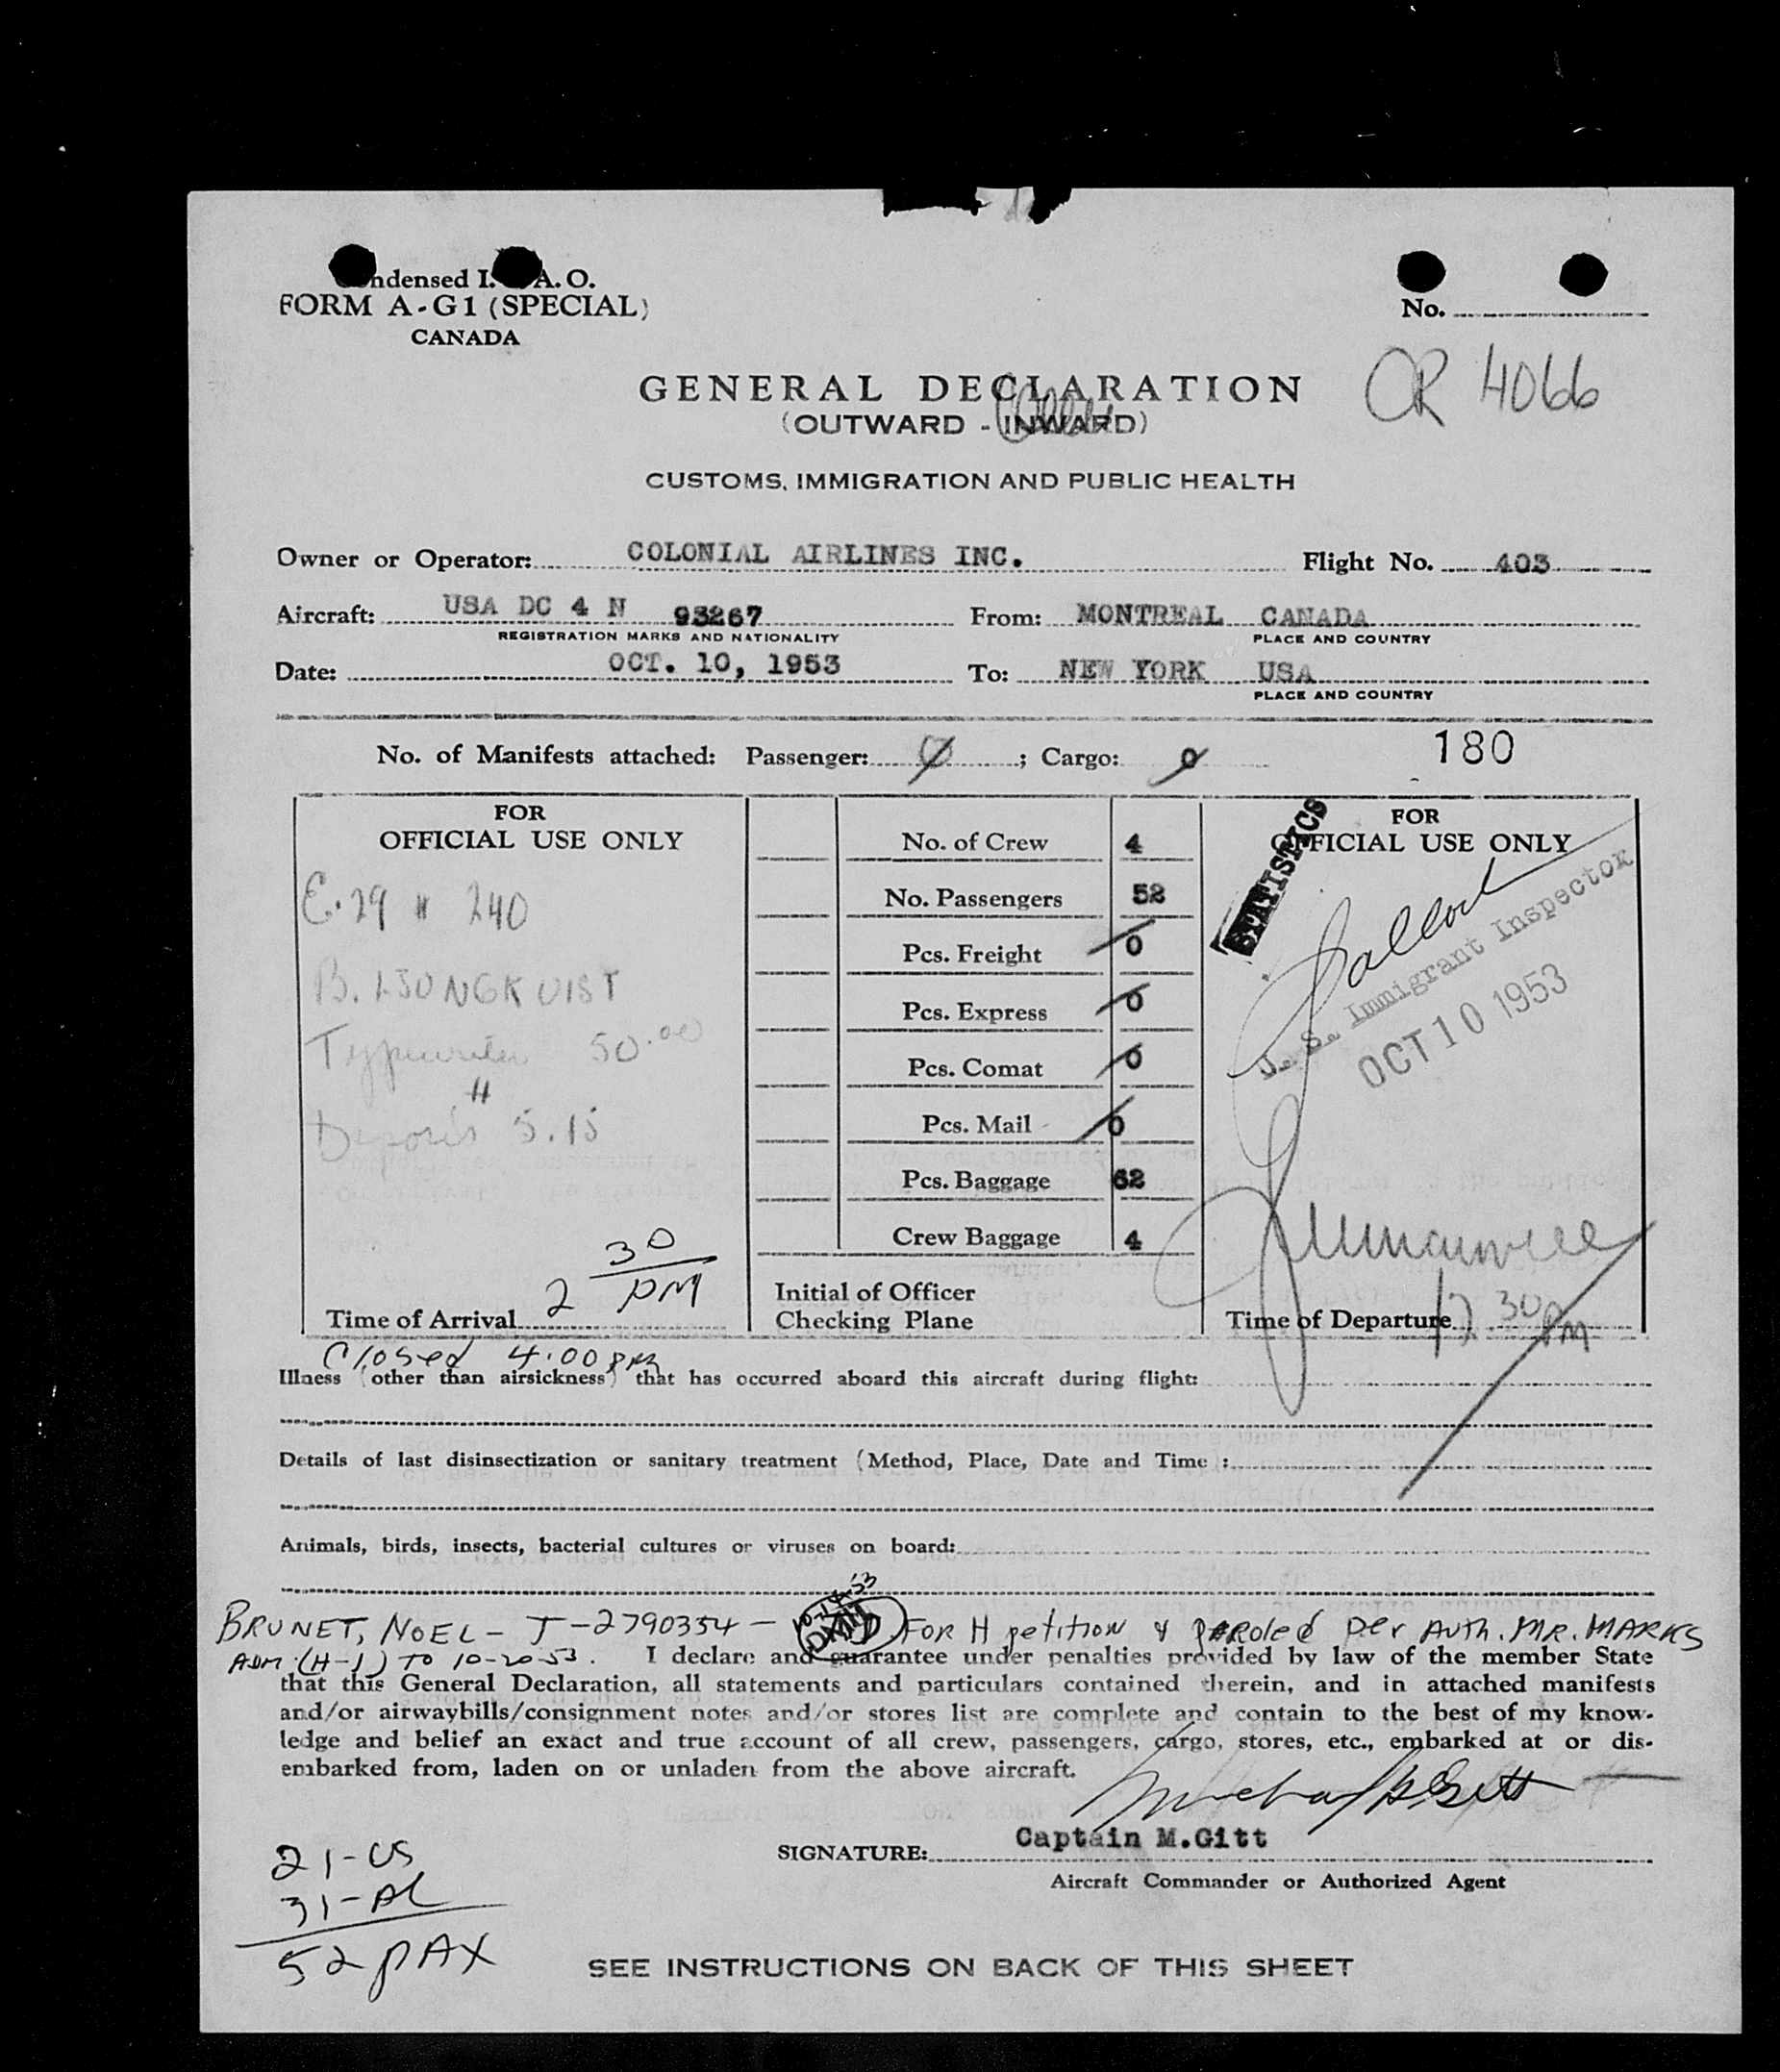 ndensed I. A. O.
FORM A-G1 (SPECIAL)
CANADA
No.
CR 4066
GENERAL DECLARATION
(OUTWARD - INWARD)
CUSTOMS, IMMIGRATION AND PUBLIC HEALTH
Owner or Operator: COLONIAL AIRLINES INC. Flight No. 403
Aircraft: USA DC 4 N 93267 From: MONTREAL CANADA
REGISTRATION MARKS AND NATIONALITY PLACE AND COUNTRY
Date: OCT. 10, 1953 To: NEW YORK USA
PLACE AND COUNTRY
No. of Manifests attached: Passenger: 0 ; Cargo: 0 180
FOR
OFFICIAL USE ONLY
E.29 # 240
Typewriter 50.00
5.15
30
2 PM
Time of Arrival
No. of Crew 4
No. Passengers 52
Pcs. Freight 0
Pcs. Express 0
Pcs. Comat 0
Pcs. Mail 0
Pcs. Baggage 62
Crew Baggage 4
Initial of Officer
Checking Plane
FOR
OFFICIAL USE ONLY
STATISTICS
U. S. Immigrant Inspector
OCT 10 1953
Time of Departure 12 30 PM
Closed 4:00 PM
Illness (other than airsickness) that has occurred aboard this aircraft during flight:
Details of last disinsectization or sanitary treatment (Method, Place, Date and Time):
Animals, birds, insects, bacterial cultures or viruses on board:
BRUNET, NOEL - T-2790354 - FOR H petition & paroled per Auth. MR. MARKS
ADM. (H-1) TO 10-20-53. I declare and guarantee under penalties provided by law of the member State
that this General Declaration, all statements and particulars contained therein, and in attached manifests
and/or airwaybills/consignment notes and/or stores list are complete and contain to the best of my know-
ledge and belief an exact and true account of all crew, passengers, cargo, stores, etc., embarked at or dis-
embarked from, laden on or unladen from the above aircraft.
SIGNATURE: Captain M.Gitt
Aircraft Commander or Authorized Agent
21-US
31-AL
52 PAX
SEE INSTRUCTIONS ON BACK OF THIS SHEET